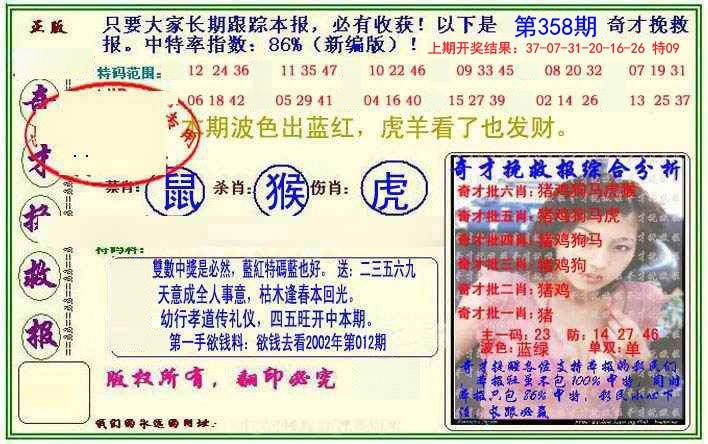 正版
只要大家长期跟踪本报，必有收获！以下是 第358期 奇才挽救
报。中特率指数：86%（新编版）！ 上期开奖结果：37-07-31-20-16-26 特09
特码范围： 12 24 36 11 35 47 10 22 46 09 33 45 08 20 32 07 19 31
06 18 42 05 29 41 04 16 40 15 27 39 02 14 26 13 25 37
本期波色出蓝红，虎羊看了也发财。
奇才挽救报
鼠 杀肖：猴 伤肖：虎
特码料：
雙數中獎是必然，藍紅特碼藍也好。 送：二三五六九
天意成全人事意，枯木逢春本回光。
幼行孝道传礼仪，四五旺开中本期。
第一手欲钱料：欲钱去看2002年第012期
版权所有，翻印必究
我们的永远的网址：
奇才挽救报综合分析
奇才批六肖：猪鸡狗马虎猴
奇才批五肖：猪鸡狗马虎
奇才批四肖：猪鸡狗马
奇才批三肖：猪鸡狗
奇才批二肖：猪鸡
奇才批一肖：猪
主一码：23 防：14 27 46
波色：蓝绿 单双：单
奇才挽救各位支持本报的彩民们
，本报虽不包100%中特，同时
本报只包86%中特，彩民小心下
注，长跟必赢